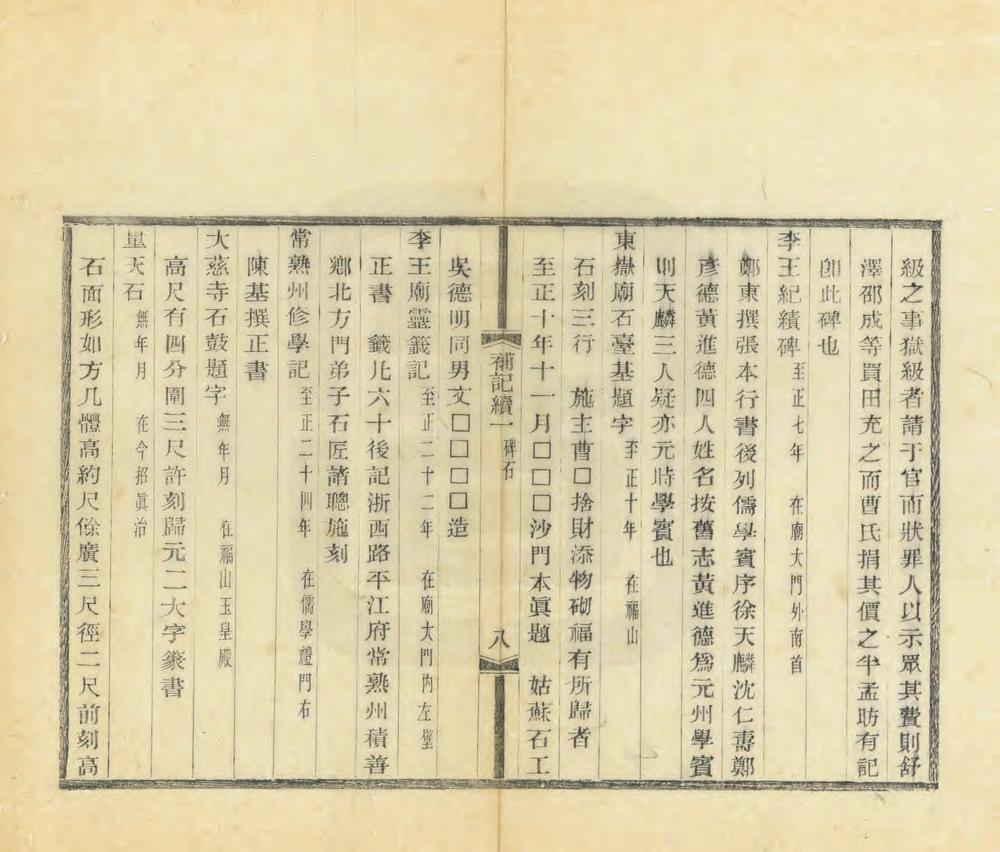 級之事獄級者請于官而狀罪人以示眾其費則舒
澤邵成等買田充之而曹氏捐其價之半孟昉有記
卽此碑也
李王紀績碑 至正七年 在廟大門外南首
鄭東撰張本行書後列儒學賓序徐天麟沈仁壽鄭
彥德黃進德四人姓名按舊志黃進德爲元州學賓
則天麟三人疑亦元時學賓也
東嶽廟石臺基題字 至正十年 在福山
石刻三行 施主曹□捨財添物砌福有所歸者
至正十年十一月□□□沙門本眞題 姑蘇石工
吳德明同男文□□□□造
補記續一 碑石 八
李王廟靈籤記 至正二十二年 在廟大門內左壁
正書 籤凡六十後記浙西路平江府常熟州積善
鄉北方門弟子石匠諸聰施刻
常熟州修學記 至正二十四年 在儒學禮門右
陳基撰正書
大慈寺石鼓題字 無年月 在福山玉皇殿
高尺有四分圍三尺許刻歸元二大字篆書
量天石 無年月 在今招眞治
石面形如方几體高約尺餘廣三尺徑二尺前刻高